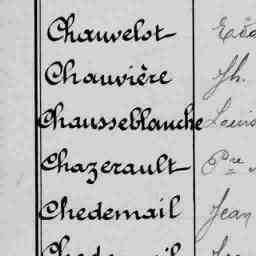 Chauvelot
Chauvière Jh.
Chausseblanche Louis
Chazerault Pre
Chedemail Jean